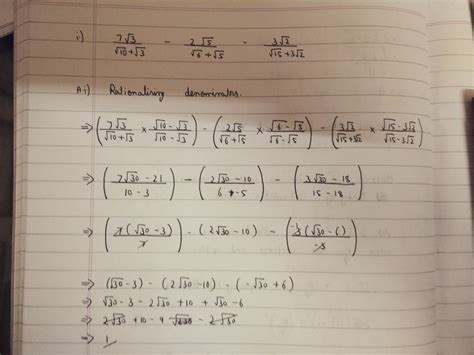 i) 7√3/(√10+√3) - 2√5/(√6+√5) - 3√2/(√15+3√2)
A.i) Rationalising denominators.
⇒ (7√3/(√10+√3) × (√10-√3)/(√10-√3)) - (2√5/(√6+√5) × (√6-√5)/(√6-√5)) - (3√2/(√15+3√2) × (√15-3√2)/(√15-3√2))
⇒ ((7√30-21)/(10-3)) - ((2√30-10)/(6-5)) - ((3√30-18)/(15-18))
⇒ (7(√30-3)/7) - (2√30-10) - (3(√30-6)/-3)
⇒ (√30-3) - (2√30-10) - (-√30+6)
⇒ √30-3-2√30+10+√30-6
⇒ 2√30+10-9 - 2√30
⇒ 1